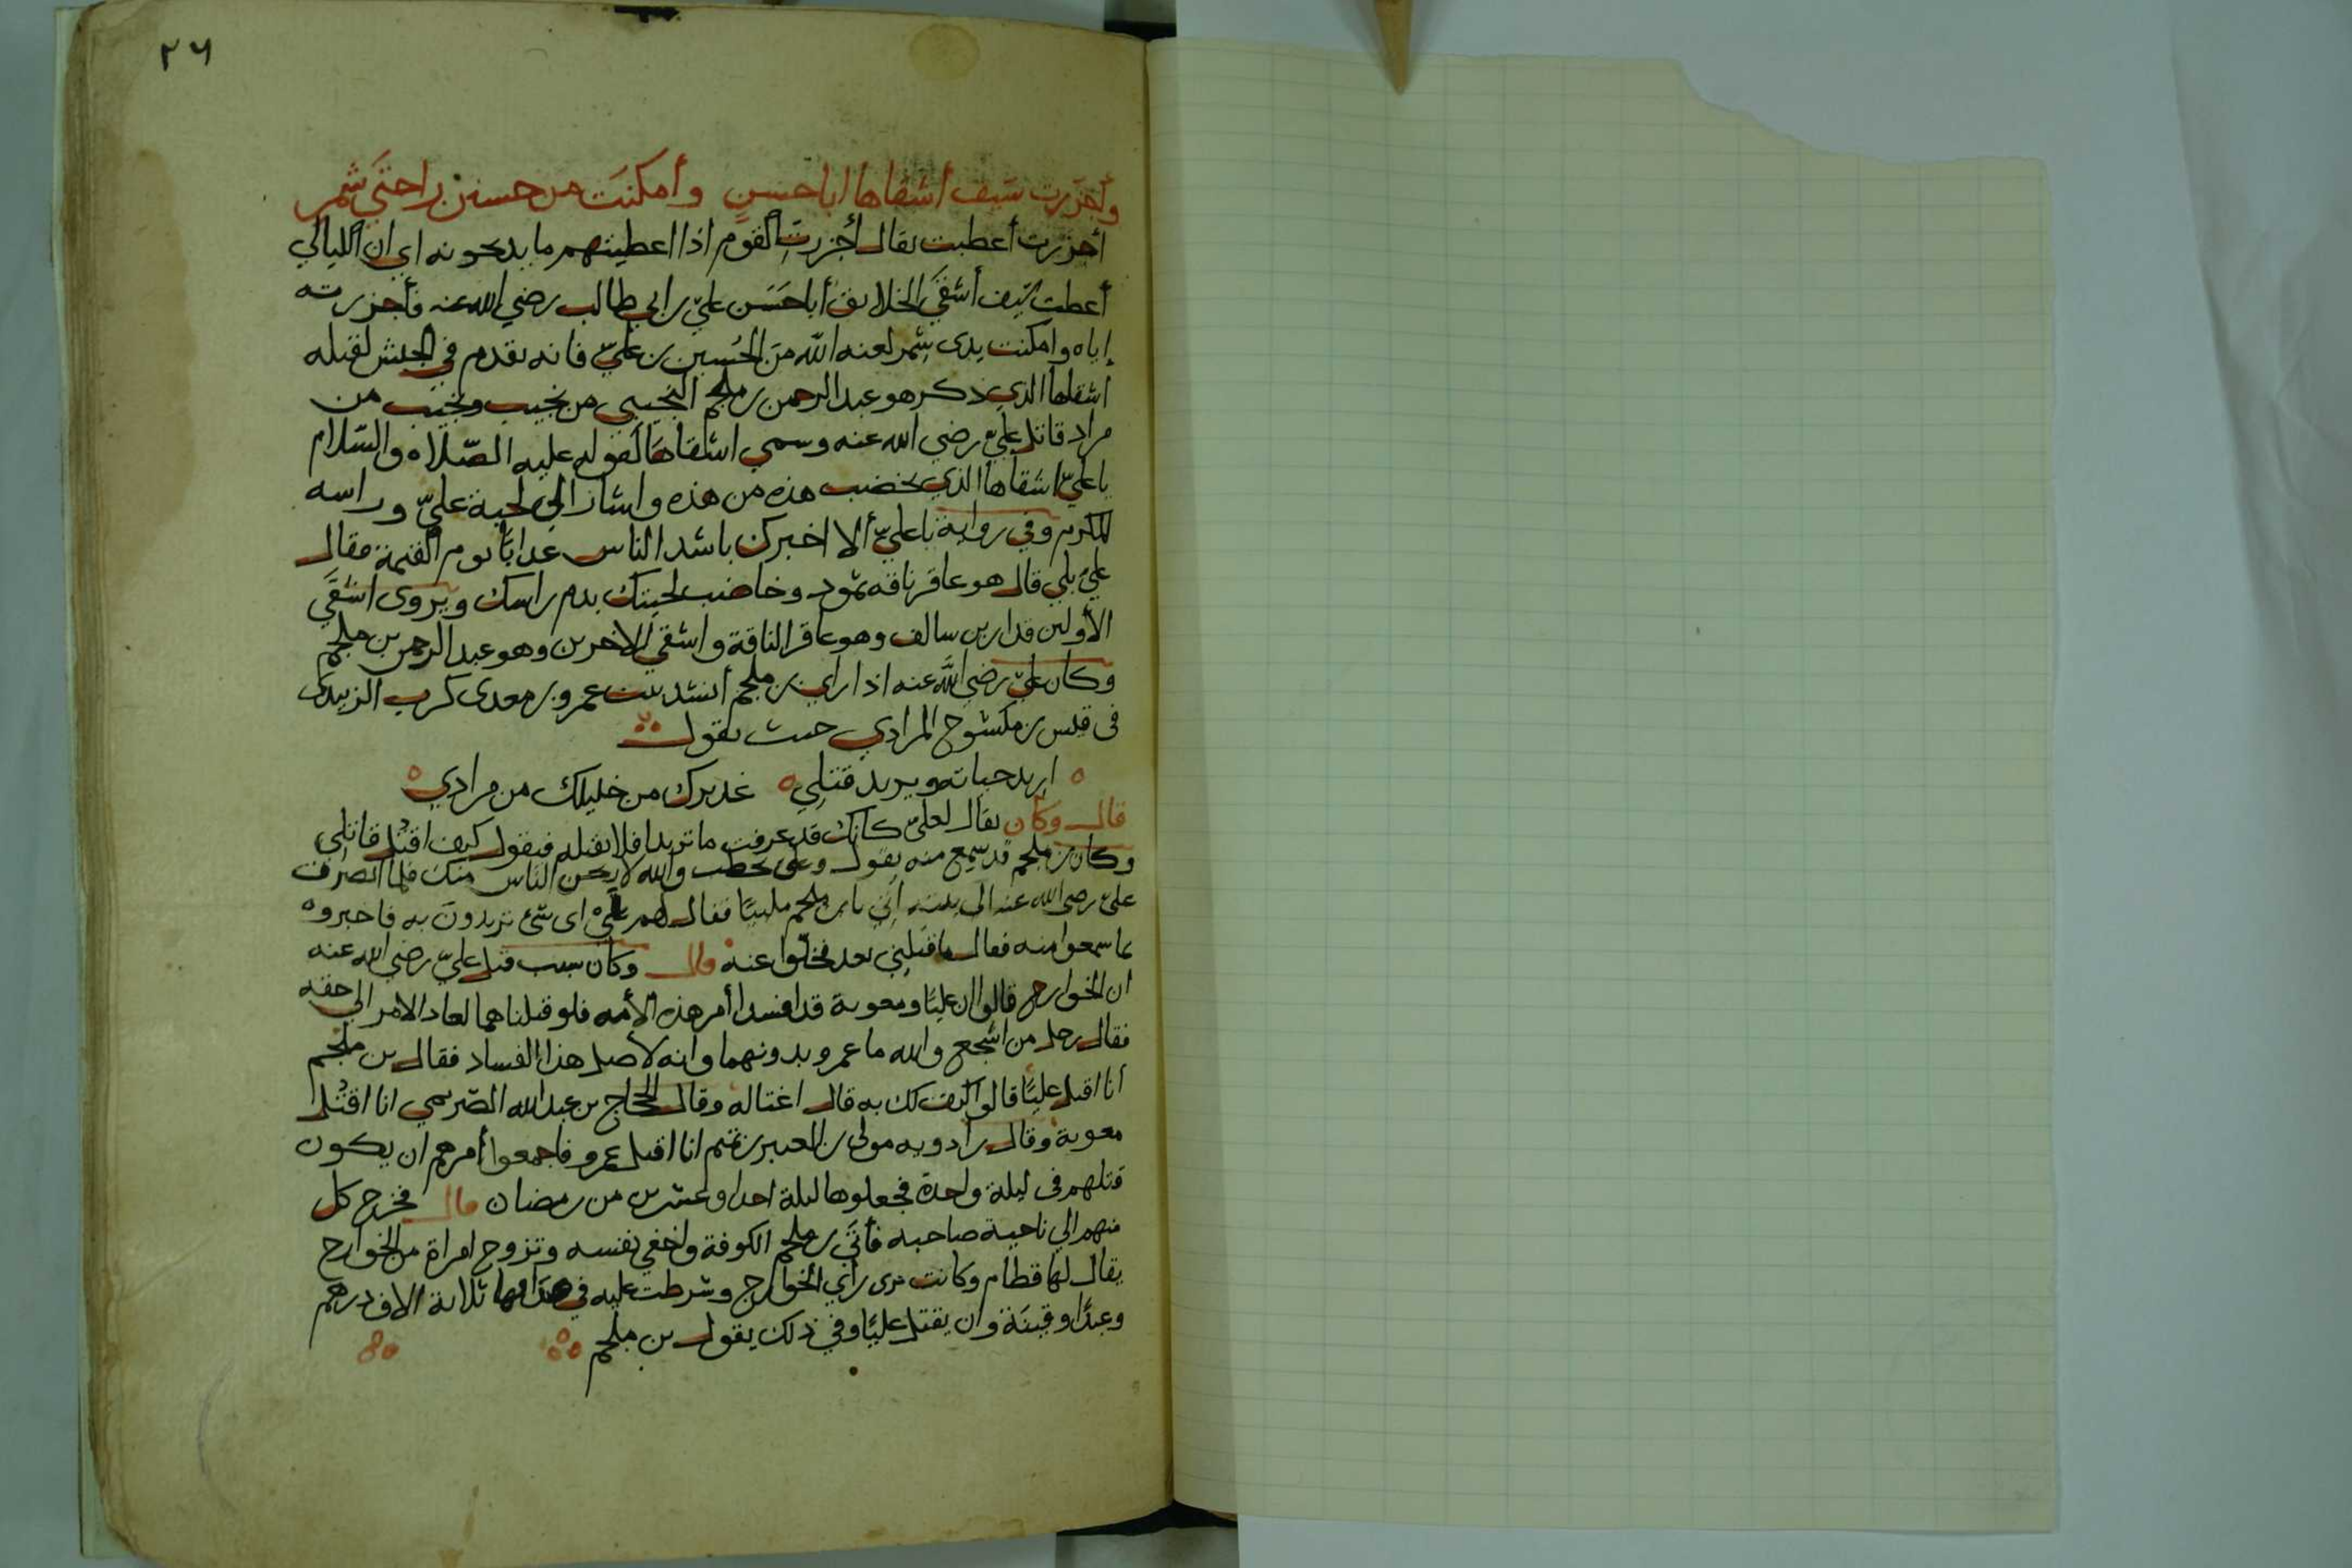 ٢٦
وأجزرت سيف أشقاها أبا حسن وأمكنت من حسين راحتي شمر
أجزرت أعطيت يقال أجزرت القوم اذا اعطيتهم ما يذبحونه اي ان الليالي
أعطت سيف أشقى الخلايق أبا حسن علي بن ابي طالب رضي الله عنه فأجزرته
إياه وأمكنت يدى شمر لعنه الله من الحسين بن علي فانه تقدم في الجيش لقتله
أشقاها الذي ذكر هو عبد الرحمن بن ملجم التجيبي من تجيب وتجيب من
مراد قاتل علي رضي الله عنه وسمي اشقاها لقوله عليه الصلاه والسلام
يا علي اشقاها الذي يخضب هذه من هذه واشار الى لحية علي وراسه
المكرم وفي رواية يا علي ألا اخبرك باشد الناس عذابا يوم القيمة فقال
علي بلي قال هو عاقر ناقة ثمود وخاضب لحيتك بدم راسك ويروى أشقى
الأولين قدار بن سالف وهو عاقر الناقة واشقي الاخرين وهو عبد الرحمن بن ملجم
وكان علي رضي الله عنه اذا راي بن ملجم أنشد بيت عمرو بن معدى كرب الزبيدى
فى قيس بن مكشوح المرادي حيث يقول
اريد حياته ويريد قتلي غديرك من خليلك من مرادي
قال وكان يقال لعلي كانك قد عرفت ما تريد افلا تقتله فيقول كيف اقتل قاتلي
وكان بن ملجم قد سمع منه يقول وعلى يخطب والله لاريحن الناس منك فلما انصرف
علي رضي الله عنه الى بيته اتي بابن ملجم ملببا فقال لهم علي اى شئ تريدون به فاخبروه
بما سمعوا منه فقال ما قتلني بعد فخلوا عنه قال وكان سبب قتل علي رضي الله عنه
ان الخوارج قالوا ان عليا ومعوية قد افسدا أمر هذه الأمه فلو قتلناهما لعاد الامر الي حقه
فقال رجل من اشجع والله ما عمرو بدونهما وانه لأصل هذا الفساد فقال بن ملجم
أنا اقتل عليا قالوا كيف لك به قال اغتاله وقال الحجاج بن عبد الله الصريمي انا اقتل
معوية وقال رادويه مولى بن العنبر بن تميم انا اقتل عمرو فاجمعوا أمرهم ان يكون
قتلهم فى ليلة واحدة فجعلوها ليلة احدا وعشرين من رمضان قال فخرج كل
منهم الي ناحية صاحبه فأتى بن ملجم الكوفة واخفي نفسه وتزوج امراة من الخوارج
يقال لها قطام وكانت ترى راي الخوارج وشرطت عليه في صداقها ثلاثة الاف درهم
وعبدا وقينة وان يقتل عليا وفي ذلك يقول بن ملجم